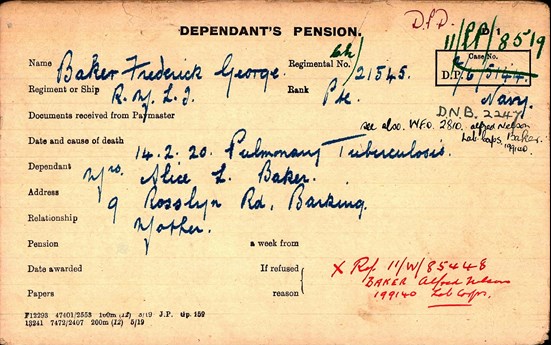 D.P.D.
DEPENDANT'S PENSION.
11/PP/8519
Name Baker Frederick George. Regimental No. Ch/21545.
Case No.
D.P.
Regiment or Ship R.M.L.I. Rank Pte. Navy.
Documents received from Paymaster
D.N.B. 2247
see also. W.F.O. 2810. Alfred Nelson Baker.
Lab Corps, 199140
Date and cause of death 14.2.20. Pulmonary Tuberculosis.
Dependant Mrs. Alice L. Baker.
Address 9 Rosslyn Rd, Barking.
Relationship Mother.
Pension a week from
Date awarded If refused
Papers reason
X Ref 11/W/85448
BAKER Alfred Nelson
199140 Lab Corps.
F12293 47401/2553 100m (12) 3/19 J.P. Gp. 159
13241 7472/2407 200m (12) 5/19